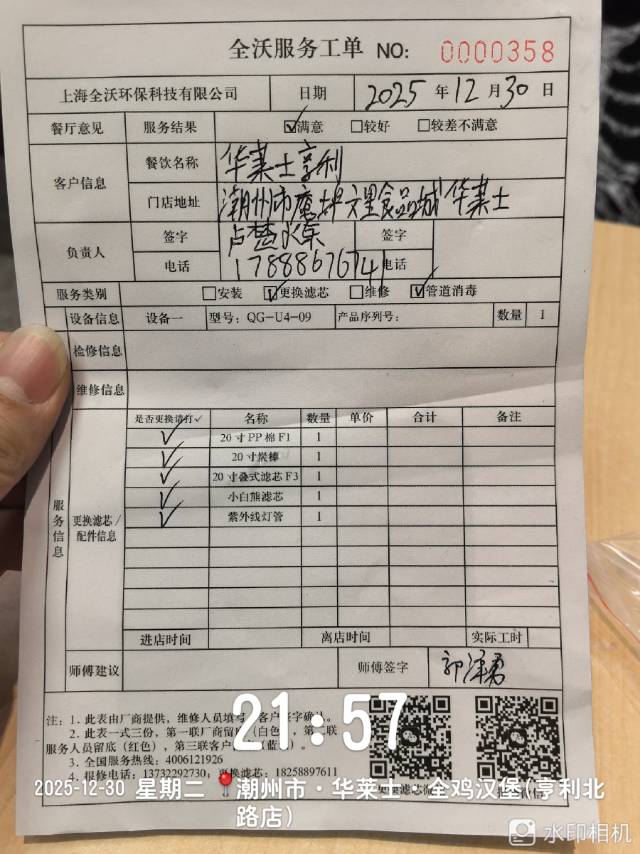 全沃服务工单 NO: 0000358
上海全沃环保科技有限公司 日期 2025 年 12 月 30 日
餐厅意见 服务结果 ☑满意 □较好 □较差不满意
客户信息 餐饮名称 华莱士亨利
门店地址 潮州市 食品城华莱士
负责人 签字 卢楚 签字
电话 17888676741 电话
服务类别 □安装 ☑更换滤芯 □维修 ☑管道消毒
设备信息 设备一 型号: QG-U4-09 产品序列号: 数量 1
检修信息
维修信息
服务信息 更换滤芯/配件信息
是否更换请打✓ 名称 数量 单价 合计 备注
✓ 20寸PP棉F1 1
✓ 20寸炭棒 1
✓ 20寸叠式滤芯F3 1
✓ 小白熊滤芯 1
✓ 紫外线灯管 1
进店时间 离店时间 实际工时
师傅建议 师傅签字 郭泽勇
注: 1. 此表由厂商提供, 维修人员填写 客户签字确认。
2. 此表一式三份, 第一联厂商留底(白色), 第二联
服务人员留底(红色), 第三联客户 (蓝
3. 全国服务热线: 4006121926
4. 报修电话: 13732292730 更换滤芯: 18258897611
21:57
2025-12-30 星期二 潮州市·华莱士·全鸡汉堡(亨利北
路店)
水印相机